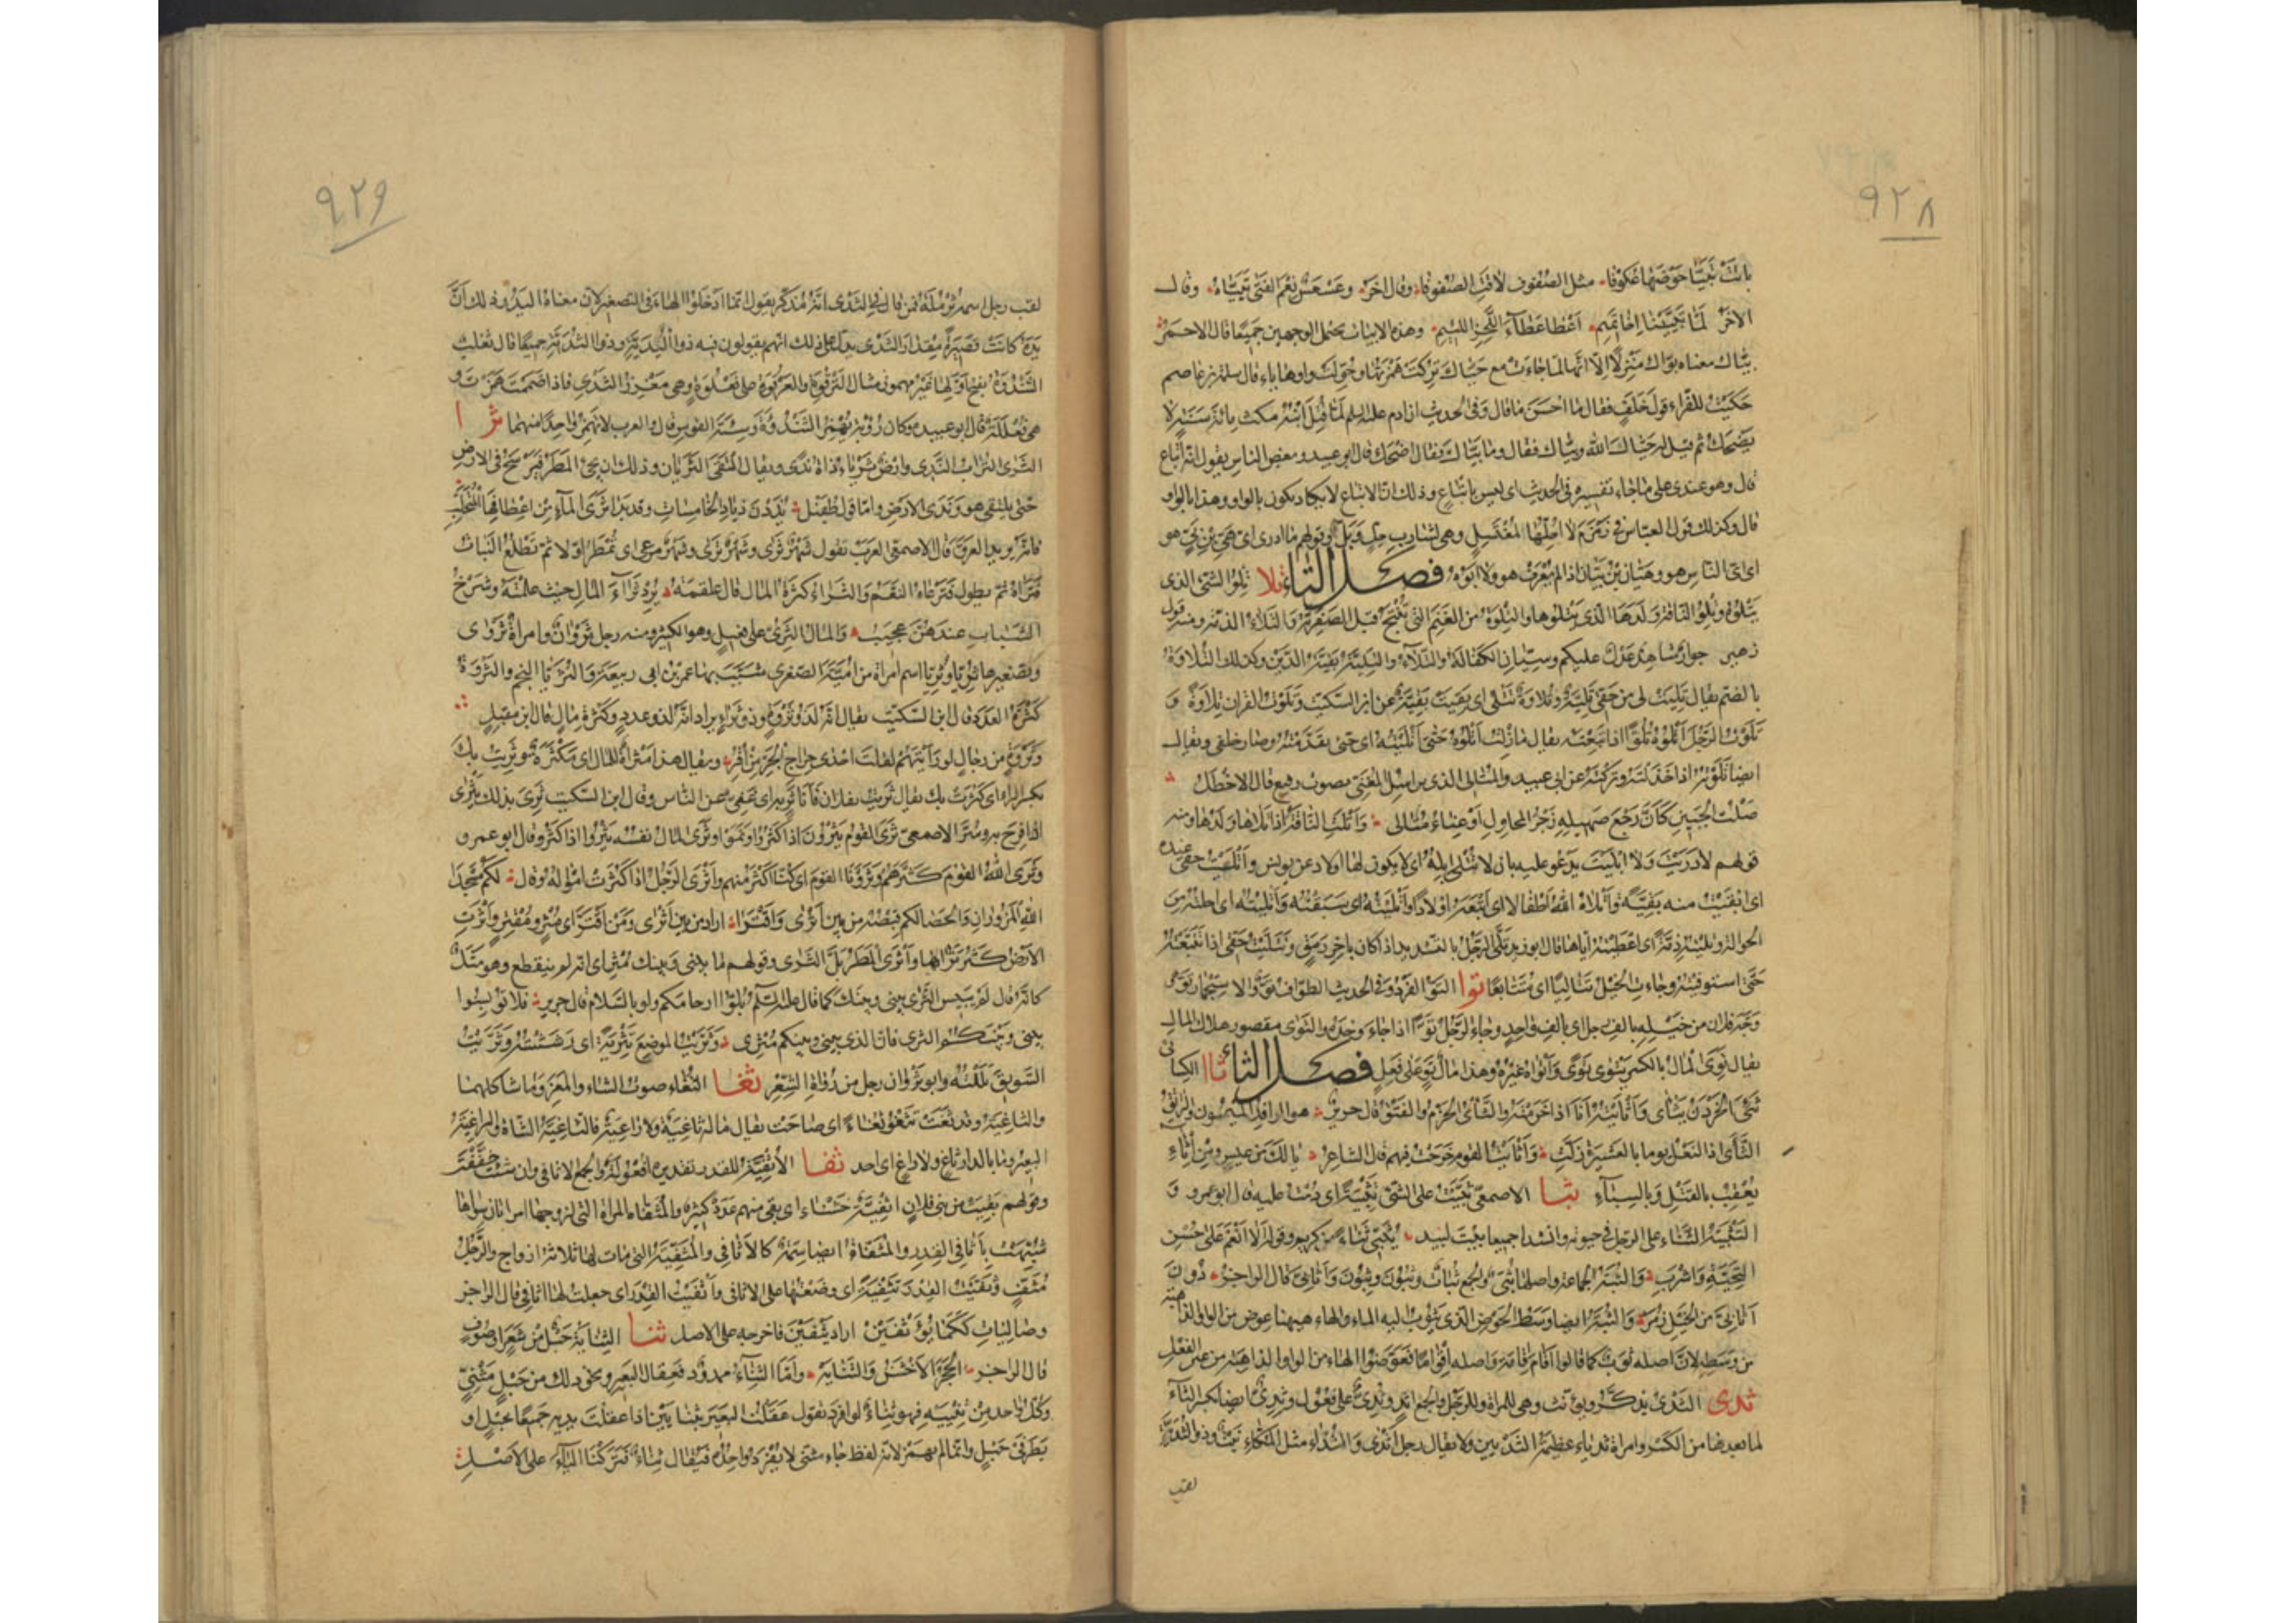 ٩٢٨
باتت تبيّا حوضها عكوفا مثل الصفوف لاقت الصفوفا وقال اخر وعسعس نعم الفتى تبيّاه وقال
الآخر لمّا تبيّينا اخا تميم اعطا عطاء اللحز اللئيم وهذه الابيات تحتمل الوجهين جميعا قال الاحمر
بيّاك معناه بوّاك منزلا الا انها لما جاءت مع حيّاك تركت همزتها وحوّلت واوها ياء قال سلمة بن عاصم
حكيت للفراء قول خلف فقال ما احسن ما قال وفى الحديث ان ادم عليه السلم لمّا قُتِل ابنه مكث مائة سنة لا
يضحك ثم قيل له حيّاك الله وبيّاك فقال وما بيّاك فقال اضحك قال ابو عبيد وبعض الناس يقول انه اتباع
قال وهو عندى على ما جاء تفسيره فى الحديث اى ليس باتباع وذلك ان الاتباع لا يكاد يكون بالواو وهذا بالواو
قال وكذلك قول العباس فى زمزم لا احلّها لمغتسل وهى لشارب حلّ وبلّ وقولهم ما ادرى اى هىّ بن بىّ هو
اى اى الناس هو وهيّان بن بيّان اذا لم يعرف هو ولا ابوه فصل التاء تلا تلو الشئ الذى
يتلوه وتلو الناقة ولدها الذى يتلوها والتلوة من الغنم التى تنتج قبل الصفرية والتلاء الذمة ومنه قول
زهير جوار شاهد عدل عليكم وسيّان الكفالة والتلاء والتلية بقية الدين وكذلك التلاوة
بالضم يقال تليت لى من حقى تلية وتلاوة تتلى اى بقيت بقية عن ابن السكيت وتلوت القران تلاوة و
تلوت الرجل اتلوه تلوّا اذا تبعته يقال ما زلت اتلوه حتى اتليته اى حتى تقدمته وصار خلفى ويقال
ايضا تلوته اذا خذلته وتركته عن ابى عبيد والمتالى الذى يراسل المغنى بصوت رفيع قال الاخطل
صلت الجبين كأن رجع صهيله زجر المحاول او غناء متالى وأتلت الناقة اذا تلاها ولدها ومنه
قولهم لا دريت ولا اتليت يدعو عليه بان لا تتلى ابله اى لا يكون لها اولاد عن يونس وأتليت حقى عنده
اى ابقيت منه بقية وأتلاه الله اطفالا اى اتبعه اولادا وأتليته اى سبقته وأتليته اى احلته من
الحوالة وتليته ذمة اى اعطيته اياها قال ابو زيد تلّى الرجل بالتشديد اذا كان باخر رمق وتتليت حقى اذا تتبعته
حتى استوفيته وجاءت الخيل تتاليا اى متتابعا توا التوّ الفرد وفى الحديث الطواف توّ والاستجمار توّ
وجّه فلان من خيله بالف توّ اى بالف واحد وجاء الرجل توّا اذا جاء وحده والتوى مقصور هلاك المال
يقال توى المال بالكسر يتوى توى وأتواه غيره وهذا مال توٍ على فعل فصل الثاء ثاا الكسائى
ثئى الخرز يثأى وأثأيته انا اذا خرمته والثأى الخرم والفتق قال جرير هو الوافد الميمون والراتق
الثأى اذا النعل يوما بالعشيرة زلّت وأثأيت فى القوم جرحت فيهم قال الشاعر يا لك من عيث ومن إثآء
يعقب بالقتل وبالسباء ثبا الاصمعى ثبيت على الشئ تثبية اى دمت عليه قال ابو عمرو و
التثبية الثناء على الرجل فى حيوته وانشدا جميعا بيت لبيد يثبى ثناء من كريم وقوله الا انعم على حسن
التحية واشرب والثبة الجماعة واصلها ثبى والجمع ثبات وثبون وثبون وأثابىّ قال الراجز دون
أثابىّ من الخيل زمر والثبة ايضا وسط الحوض الذى يثوب اليه الماء والهاء ههنا عوض من الواو الذاهبة
من وسطه لان اصله ثوب كما قالوا اقام اقامة واصله اقواما فعوّضوا الهاء من الواو الذاهبة من عين الفعل
ثدى الثدى يذكر ويؤنث وهى للمراة وللرجل والجمع اثد وثدىّ على فعول وثدىّ ايضا بكسر الثاء
لما بعدها من الكسر وامراة ثدياء عظيمة الثديين ولا يقال رجل أثدى والثداء مثل المكاء نبت وذو الثدية
لقب
٩٢٩
لقب رجل اسمه ثرملة فمن قال فى الثدى انه مذكر يقول انما ادخلوا الهاء فى التصغير لان معناه اليد وذلك ان
يده كانت قصيرة مقدار الثدى يدل على ذلك انهم يقولون فيه ذو اليدية وذو الثدية جميعا قال ثعلب
الثندوة بفتح اولها غير مهموز مثال الترقوة والعرقوة على فعلوة وهى مغرز الثدى فاذا ضممت همزت و
هى فعللة قال ابو عبيدة وكان رؤبة يهمز الثندؤة وسئة القوس قال والعرب لا تهمز واحدا منهما ثرا
الثرى التراب الندى وارض ثرياء ذاة ندى ويقال التقى الثريان وذلك ان يجئ المطر فيرسخ فى الارض
حتى يلتقى هو وندى الارض وامّا قول طفيل يذدن ذياد الخامسات وقد بدا ثرى الماء من اعطافها المتحلب
فانه يريد العرق قال الاصمعى العرب تقول شهر ثرى وشهر ترى وشهر مرعى اى تمطر اولا ثم تطلع النبات
فتراه ثم يطول فترعاه النعم والثراء كثرة المال قال علقمة يردن ثراء المال حيث علمنه وشرخ
الشباب عندهن عجيب والمال الثرىّ على فعيل وهو الكثير ومنه رجل ثروان وامراة ثروى
وتصغيرها ثريّا وثريّا اسم امراة من امية الصغرى شبّب بها عمر بن ابى ربيعة والثريا النجم والثروة
كثرة العدد قال ابن السكيت يقال انه لذو ثروة وذو ثراء يراد انه لذو عدد وكثرة مال قال ابن مقبل
وثروة من رجال لو رأيتهم لقلت احدى حراج الجرّ من أقر ويقال هذا مثراة للمال اى مكثرة وثريت بك
بكسر الراء اى كثرت بك يقال ثريت بفلان فأنا ثر به اى غنى عن الناس وقال ابن السكيت ثرى بذلك يثرى
اذا فرح به وسرّ الاصمعى ثرى القوم يثرون اذا كثروا ونموا وثرى المال نفسه يثروا اذا كثر وقال ابو عمرو
وثرى الله القوم كثرهم وثرونا القوم اى كنا اكثر منهم وأثرى الرجل اذا كثرت امواله وقال لكم مسجدا
الله المزوران والحصا لكم قبصه من بين أثرى وأقترا اراد من بين أثرى ومن أقترا اى مثر ومقتر وأثرت
الارض كثر ثراها وأثرى المطر بلّ الثرى وقولهم ما بينى وبينك مثر اى انه لم ينقطع وهو مثل
كانه قال لم ييبس الثرى بينى وبينك كما قال عليه السلم بلّوا ارحامكم ولو بالسلام قال جرير فلا توبسوا
بينى وبينكم الثرى فان الذى بينى وبينكم مثرى وثريت الموضع تثرية اى رششته وثريت
السويق بللته وابو ثروان رجل من رواة الشعر ثغا الثغاء صوت الشاء والمعز وما شاكلهما
والثاغية وقد ثغت تثغو ثغاء اى صاحت يقال ماله ثاغية ولا راغية فالثاغية الشاة والراغية
البعير وما بالدار ثاغ ولا راغ اى احد ثفا الأثفية للقدر تقديره افعولة والجمع الاثافى وان شئت خففت
وقولهم بقيت من بنى فلان اثفية خشناء اى بقى منهم عدد كثير والمثفاة المراة التى لزوجها امراتان سواها
شبهت بأثافى القدر والمثفاة ايضا سمة كالاثافى والمثفية التى مات لها ثلاثة ازواج والرجل
مثفّ وثفيت القدر تثفية اى وضعتها على الاثافى وأثفيت القدر اى جعلت لها اثافى قال الراجز
وصاليات ككما يؤثفين اراد يثفين فاخرجه على الاصل ثنا الثناية حبل من شعر او صوف
قال الراجز الحجر الأخشن والثناية وامّا الثناء ممدود فعقال البعير ونحو ذلك من حبل مثنىّ
وكل واحد من ثنييه فهو ثناء لو افرد تقول عقلت البعير بثنايين اذا عقلت يديه جميعا بحبل او
بطرفى حبل وانما لم يهمز لانه لفظ جاء مثنى لا يفرد واحده فيقال ثناء فتركت الياء على الاصل